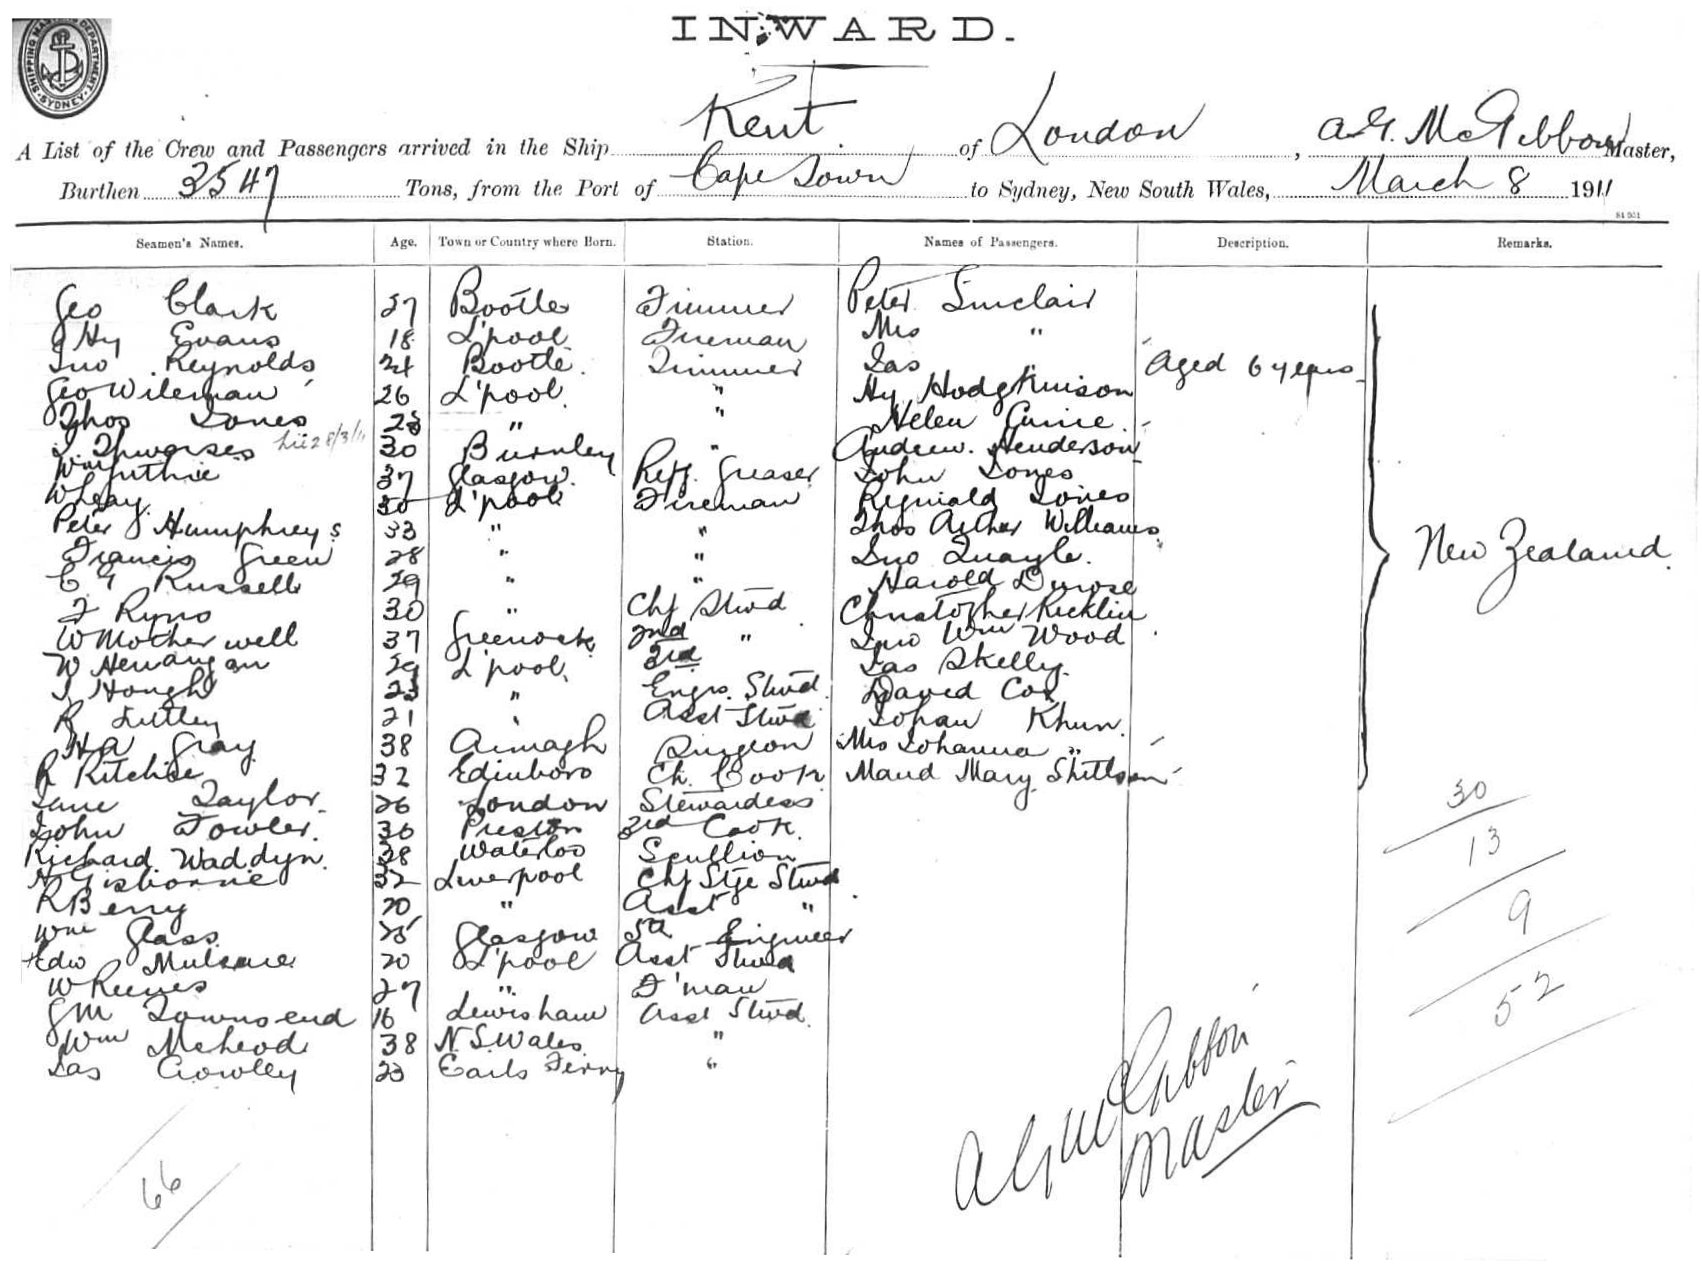 INWARD.
SHIPPING MASTERS DEPARTMENT SYDNEY
A List of the Crew and Passengers arrived in the Ship Kent of London, A.G. McGibbon Master,
Burthen 3547 Tons, from the Port of Cape Town to Sydney, New South Wales, March 8 1911
Seamen's Names. Age. Town or Country where Born. Station. Names of Passengers. Description. Remarks.
Geo Clark 27 Bootle Trimmer Peter Sinclair
Hy Evans 18 L'pool Fireman Mrs "
Jno Reynolds 24 Bootle Trimmer Jas " Aged 6 years
Geo Wileman 26 L'pool " Hy Hodgkinson
Thos Jones 28 " " Helen
30 Burnley " Andrew Henderson
Wm Guthrie 37 Glasgow Refg. Greaser John Jones
W Leay 30 L'pool Fireman Reginald Jones
Peter Humphreys 33 " " Thos Arther Williams
Francis Green 28 " " Jno Quayle New Zealand
C G Russell 29 " " Harold Durose
F Ryno 30 " Chf Stwd Christopher Ricklin
W Motherwell 37 Greenock 2nd " Jno Wm Wood
W 29 L'pool 3rd Jas Skelly
J Hough 23 " Engrs. Stwd David Cox
R 21 " Asst Stwd Johan Khun
H A Gray 38 Armagh Surgeon Mrs Johanna "
R Ritchie 32 Edinboro Ch. Cook Maud Mary
Jane Taylor 26 London Stewardess 30
John Fowler 36 Preston 3rd Cook
Richard Waddyn 38 Waterloo Scullion 13
H Gisborne 32 Liverpool Chf Stge Stwd
R Berry 20 " Asst " 9
Wm Glass 25 Glasgow 5th Engineer
Edw 20 L'pool Asst Stwd
W Reeves 27 " F'man
G M Townsend 16 Lewisham Asst Stwd 52
Wm McLeod 38 N.S. Wales "
Jas Crowley 23 Earls Ferry "
A G McGibbon
Master
66